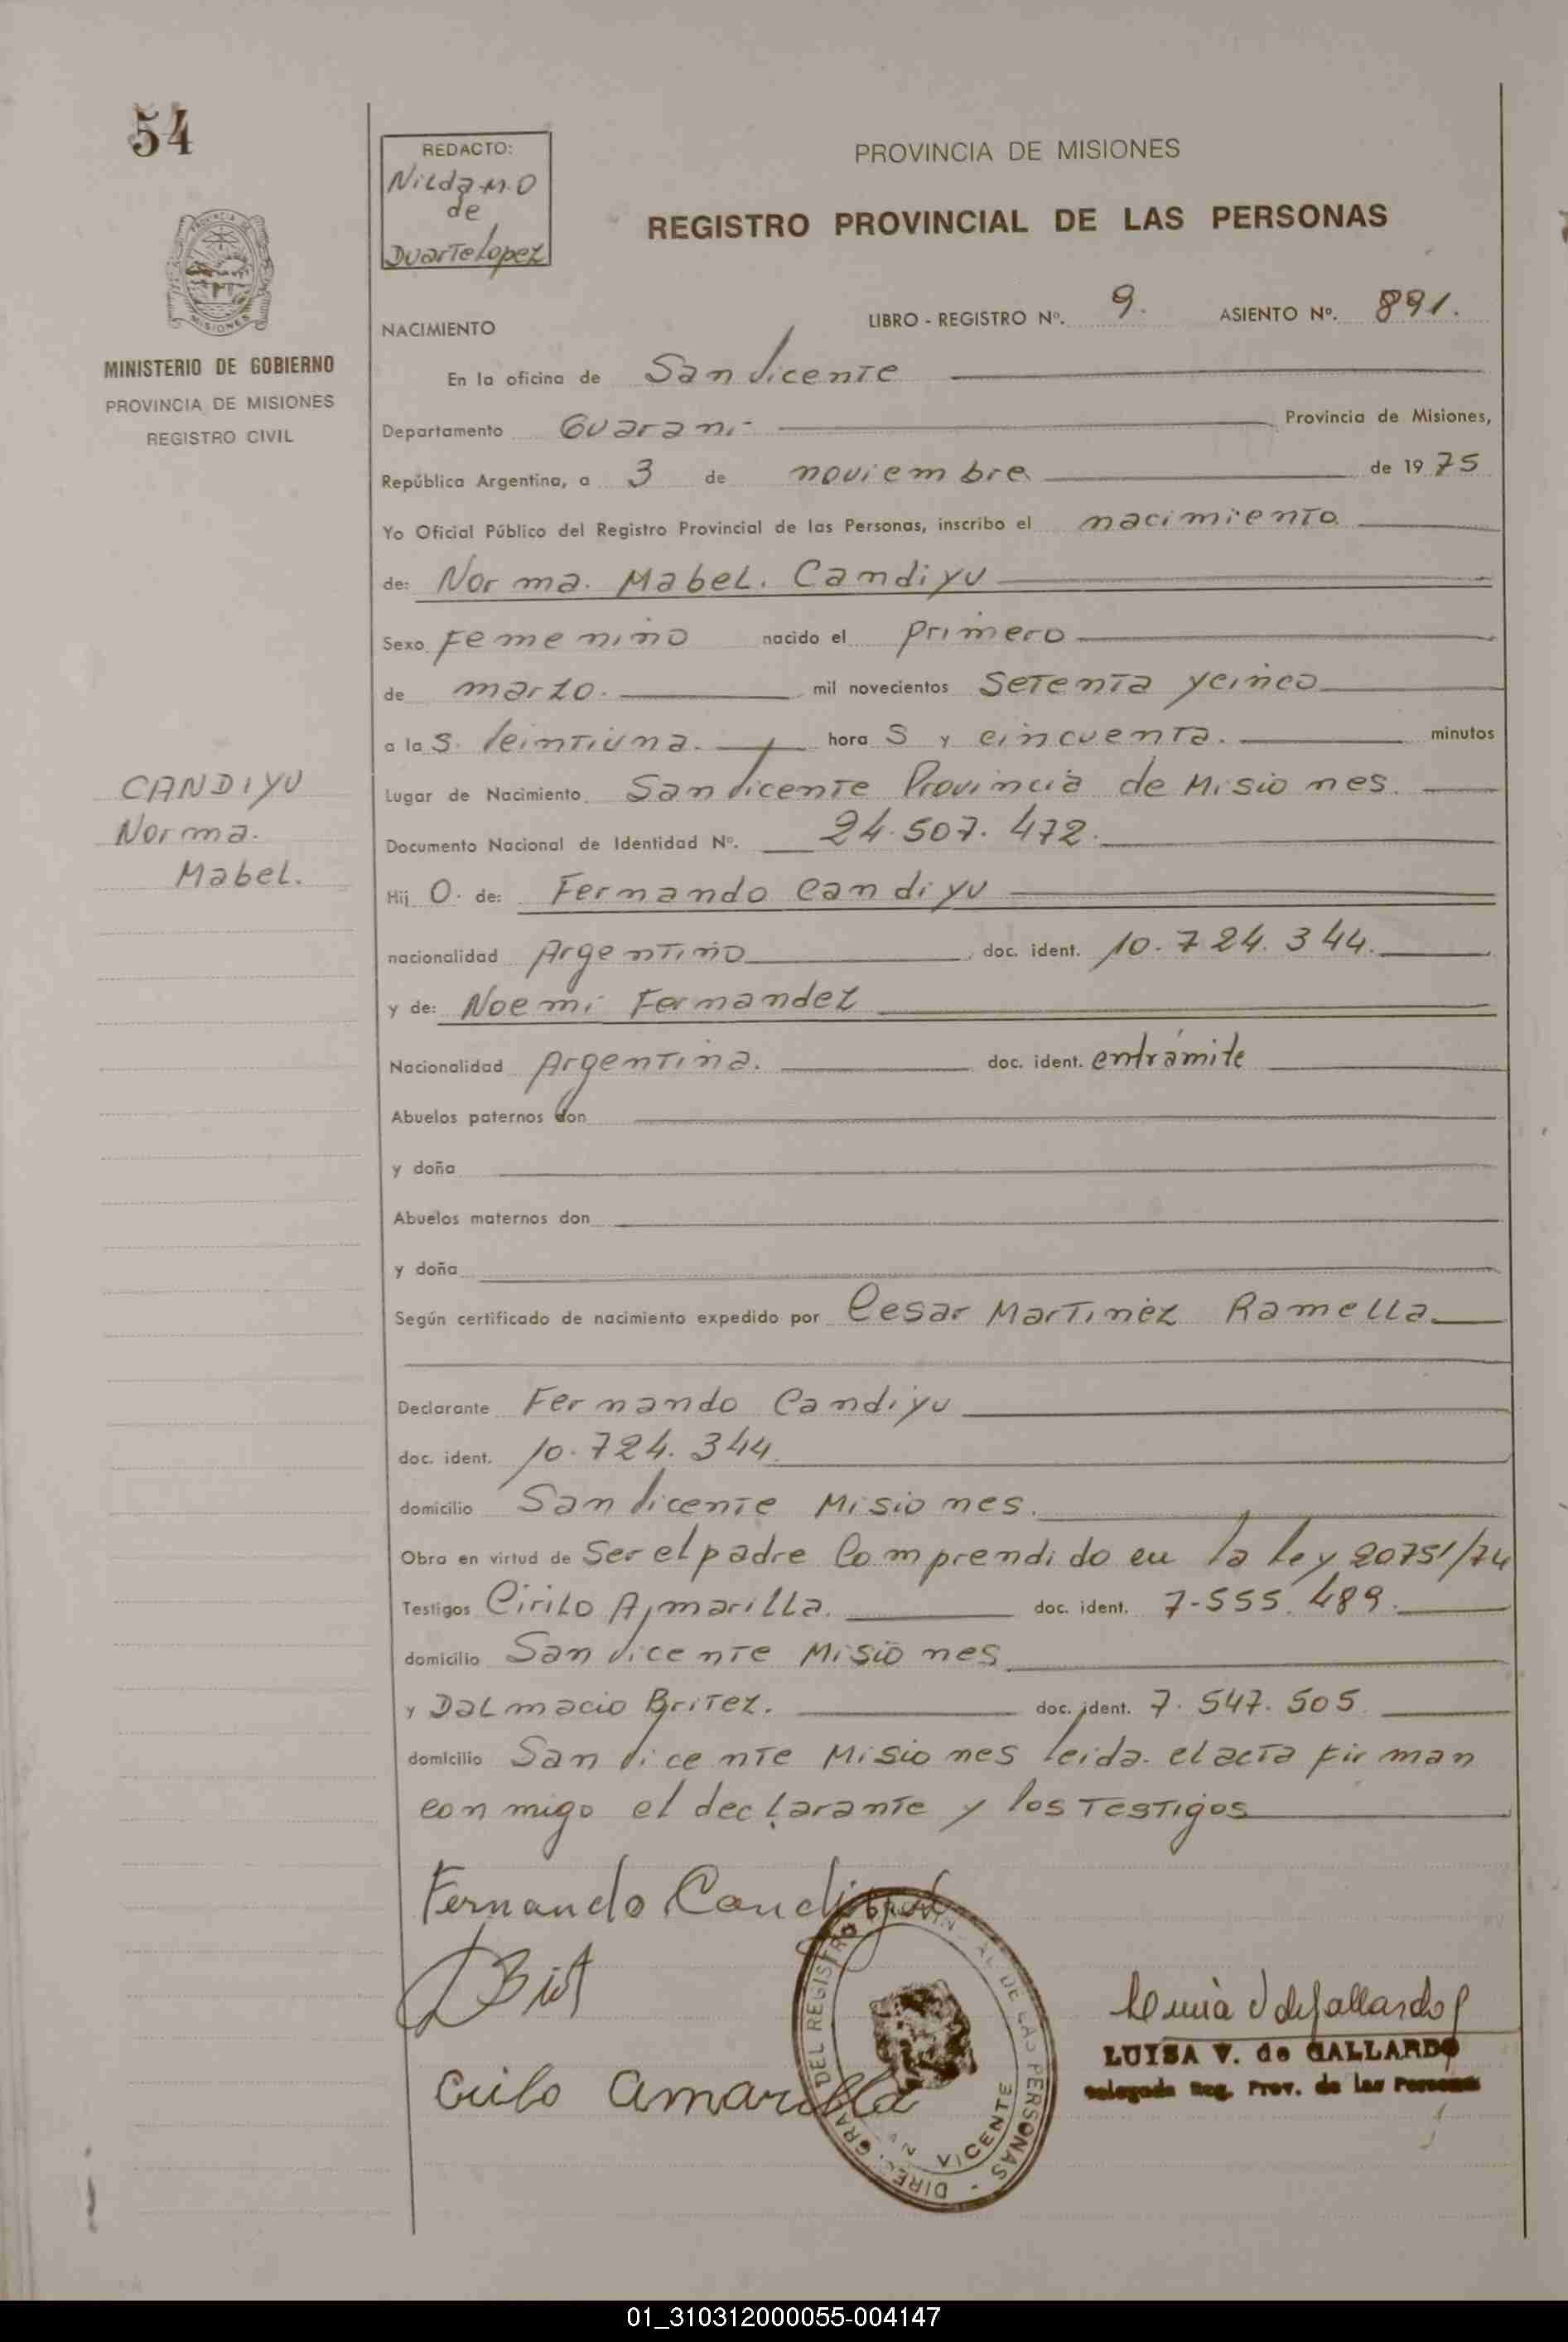 54
REDACTO:
Nilda M. O
de
Duarte Lopez
PROVINCIA DE MISIONES
REGISTRO PROVINCIAL DE LAS PERSONAS
MINISTERIO DE GOBIERNO
PROVINCIA DE MISIONES
REGISTRO CIVIL
NACIMIENTO LIBRO - REGISTRO Nº. 9. ASIENTO Nº. 891.
En la oficina de San Vicente
Departamento Guarani Provincia de Misiones,
República Argentina, a 3 de noviembre de 1975
Yo Oficial Público del Registro Provincial de las Personas, inscribo el nacimiento
de: Norma. Mabel. Candiyu
Sexo Femenino nacido el primero
de marzo. mil novecientos Setenta y cinco
a las. Veintiuna. horas y cincuenta. minutos
CANDIYU
Norma.
Mabel.
Lugar de Nacimiento San Vicente Provincia de Misiones.
Documento Nacional de Identidad Nº. 24.507.472.
Hijo. de: Fernando Candiyu
nacionalidad Argentino doc. ident. 10.724.344.
y de: Noemi Fernandez
Nacionalidad Argentina. doc. ident. entrámite
Abuelos paternos don
y doña
Abuelos maternos don
y doña
Según certificado de nacimiento expedido por Cesar Martinez Ramella
Declarante Fernando Candiyu
doc. ident. 10.724.344
domicilio San Vicente Misiones.
Obra en virtud de Ser el padre Comprendido en la ley 20751/74
Testigos Cirilo Amarilla. doc. ident. 7.555.489.
domicilio San Vicente Misiones
y Dalmacio Britez. doc. ident. 7.547.505
domicilio San Vicente Misiones leida el acta firman
conmigo el declarante y los Testigos
Fernando Candiyu
Cirilo Amarilla
DEL REGISTRO PROVINCIAL DE LAS PERSONAS
VICENTE
LUISA V. de GALLARDO
Delegada Reg. Prov. de las Personas
01_310312000055-004147